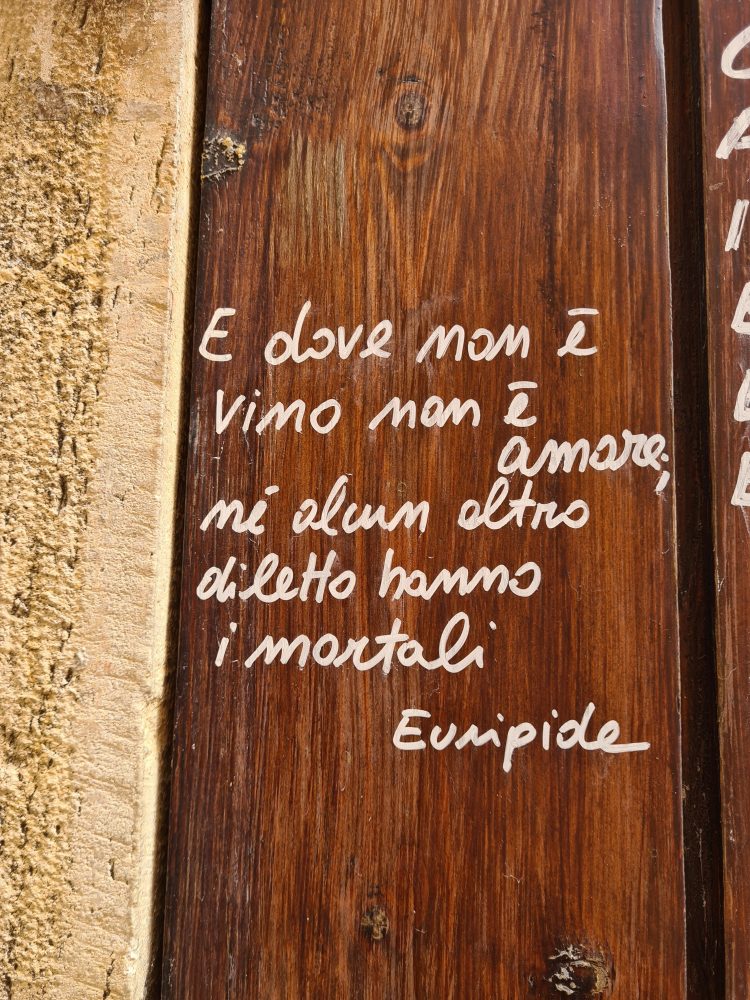 E dove non è
vino non è
amore;
né alcun altro
diletto hanno
i mortali
Euripide